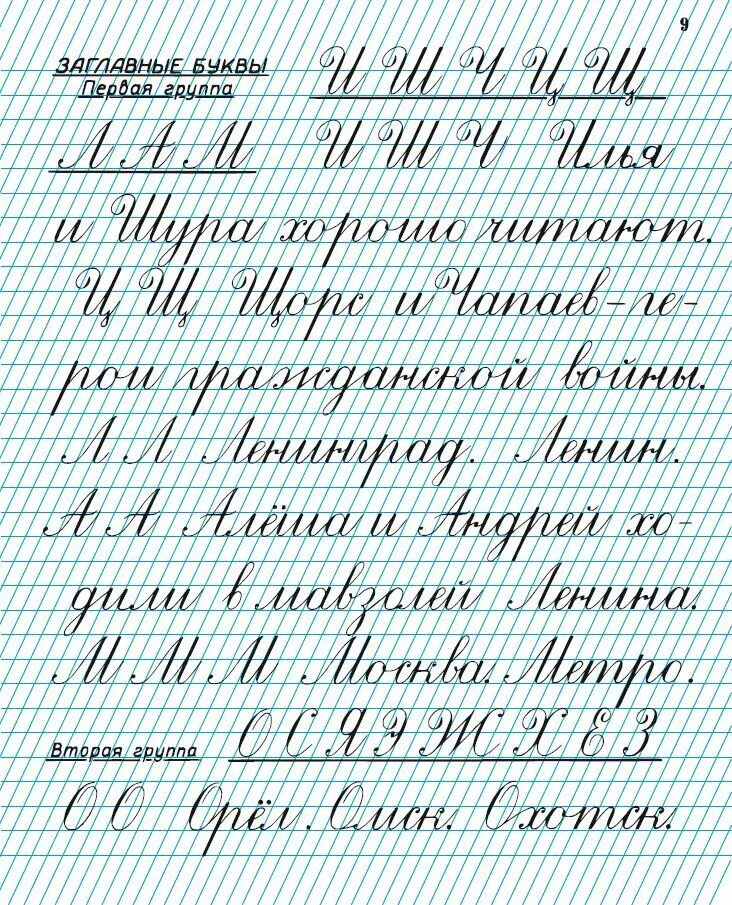 9
ЗАГЛАВНЫЕ БУКВЫ И Ш Ч Ц Щ
Первая группа
Л А М И Ш Ч Илья
и Шура хорошо читают.
Ц Щ Щорс и Чапаев – ге-
рои гражданской войны.
Л Л Ленинград. Ленин.
А А Алёша и Андрей хо-
дили в мавзолей Ленина.
М М М Москва. Метро.
Вторая группа О С Я Э Ж Х Е З
О О Орёл. Омск. Охотск.